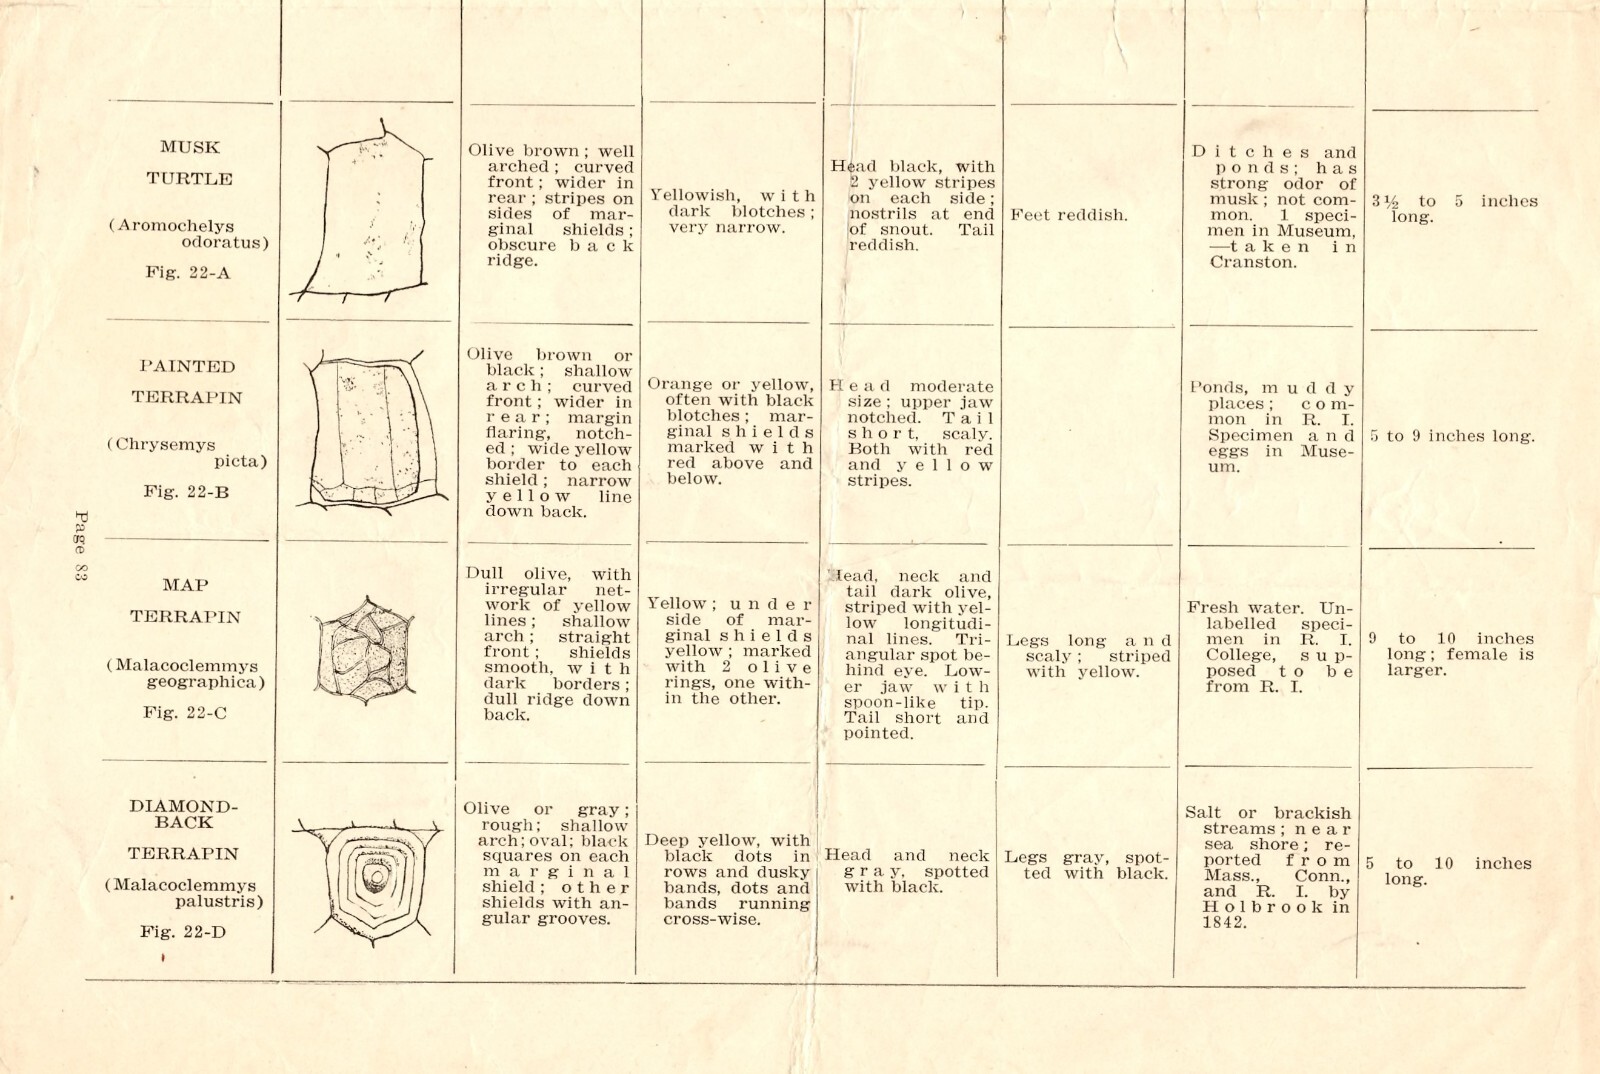 MUSK
TURTLE
(Aromochelys
odoratus)
Fig. 22-A
Olive brown; well
arched; curved
front; wider in
rear; stripes on
sides of mar-
ginal shields;
obscure back
ridge.
Yellowish, with
dark blotches;
very narrow.
Head black, with
2 yellow stripes
on each side;
nostrils at end
of snout. Tail
reddish.
Feet reddish.
Ditches and
ponds; has
strong odor of
musk; not com-
mon. 1 speci-
men in Museum,
—taken in
Cranston.
3½ to 5 inches
long.
PAINTED
TERRAPIN
(Chrysemys
picta)
Fig. 22-B
Olive brown or
black; shallow
arch; curved
front; wider in
rear; margin
flaring, notch-
ed; wide yellow
border to each
shield; narrow
yellow line
down back.
Orange or yellow,
often with black
blotches; mar-
ginal shields
marked with
red above and
below.
Head moderate
size; upper jaw
notched. Tail
short, scaly.
Both with red
and yellow
stripes.
Ponds, muddy
places; com-
mon in R. I.
Specimen and
eggs in Muse-
um.
5 to 9 inches long.
MAP
TERRAPIN
(Malacoclemmys
geographica)
Fig. 22-C
Dull olive, with
irregular net-
work of yellow
lines; shallow
arch; straight
front; shields
smooth, with
dark borders;
dull ridge down
back.
Yellow; under
side of mar-
ginal shields
yellow; marked
with 2 olive
rings, one with-
in the other.
Head, neck and
tail dark olive,
striped with yel-
low longitudi-
nal lines. Tri-
angular spot be-
hind eye. Low-
er jaw with
spoon-like tip.
Tail short and
pointed.
Legs long and
scaly; striped
with yellow.
Fresh water. Un-
labelled speci-
men in R. I.
College, sup-
posed to be
from R. I.
9 to 10 inches
long; female is
larger.
DIAMOND-
BACK
TERRAPIN
(Malacoclemmys
palustris)
Fig. 22-D
Olive or gray;
rough; shallow
arch; oval; black
squares on each
marginal
shield; other
shields with an-
gular grooves.
Deep yellow, with
black dots in
rows and dusky
bands, dots and
bands running
cross-wise.
Head and neck
gray, spotted
with black.
Legs gray, spot-
ted with black.
Salt or brackish
streams; near
sea shore; re-
ported from
Mass., Conn.,
and R. I. by
Holbrook in
1842.
5 to 10 inches
long.
Page 83